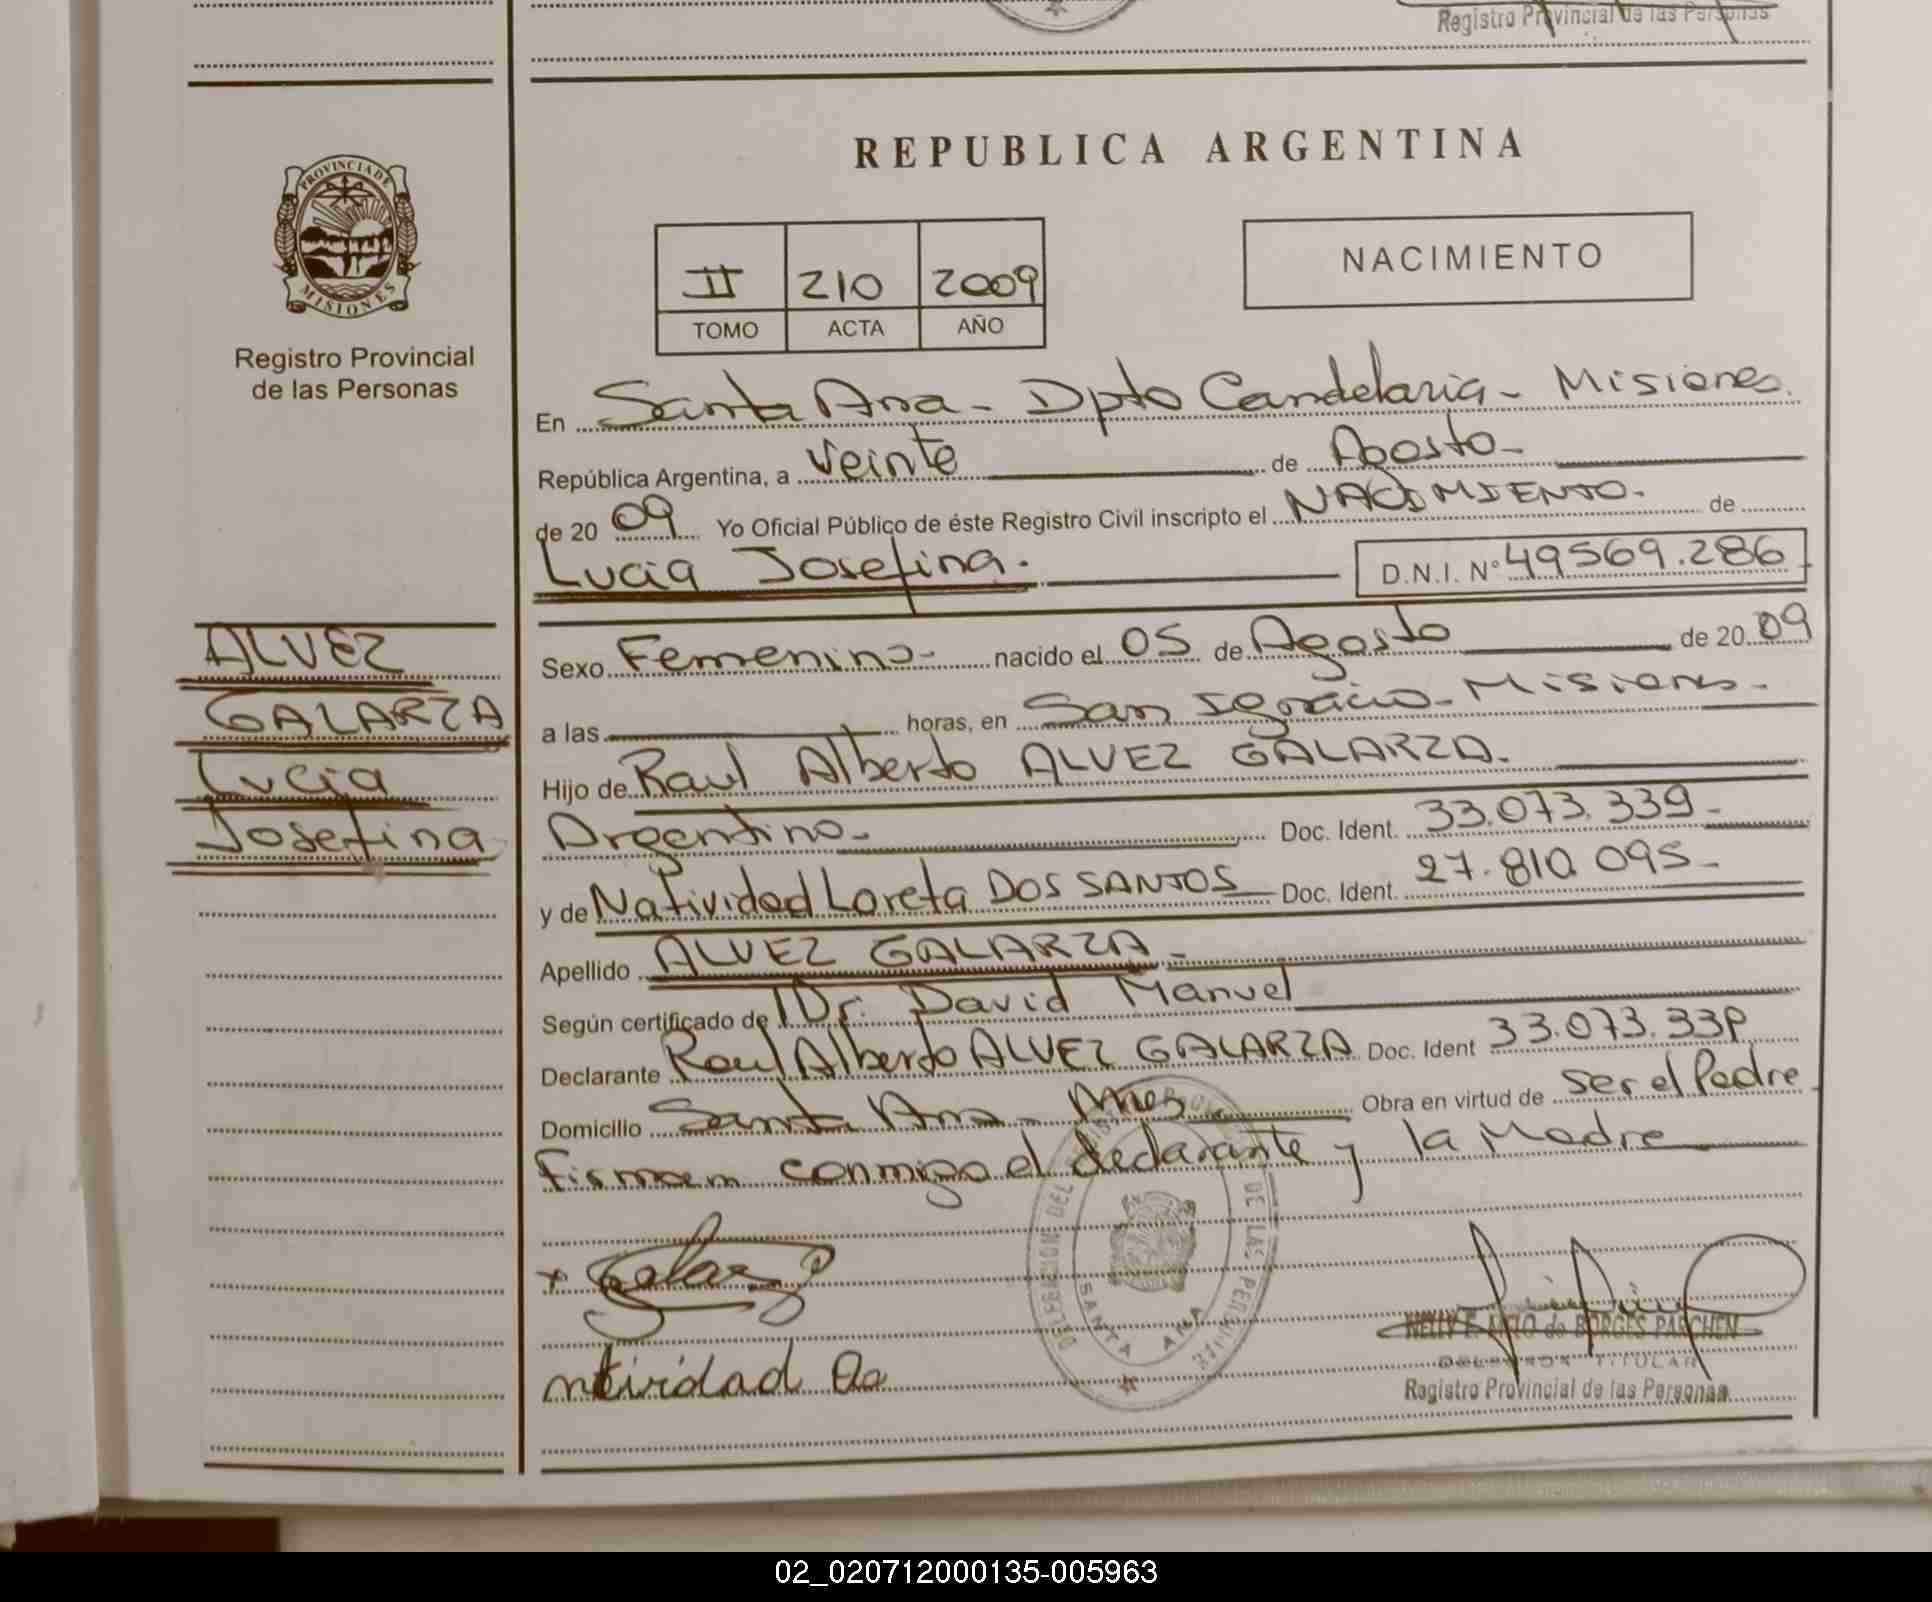 Registro Provincial de las Personas
REPUBLICA ARGENTINA
PROVINCIA DE
MISIONES
Registro Provincial
de las Personas
II 210 2009
TOMO ACTA AÑO
NACIMIENTO
En Santa Ana - Dpto Candelaria - Misiones.
República Argentina, a veinte de Agosto-
de 2009 Yo Oficial Público de éste Registro Civil inscripto el NACIMIENTO. de
Lucia Josefina. D.N.I. Nº 49569.286
ALVEZ
GALARZA
Lucia
Josefina
Sexo Femenino- nacido el 05 de Agosto de 2009
a las horas, en San Ignacio - Misiones.
Hijo de Raul Alberto ALVEZ GALARZA.
Argentino- Doc. Ident. 33.073.339-
y de Natividad Loreta DOS SANTOS Doc. Ident. 27.810.095-
Apellido ALVEZ GALARZA-
Según certificado de Dr. David Manuel
Declarante Raul Alberto ALVEZ GALARZA Doc. Ident 33.073.339
Domicilio Santa Ana - Mnes Obra en virtud de ser el Padre
Firman conmigo el declarante y la Madre
DELEGACION DEL REGISTRO PROVINCIAL DE LAS PERSONAS
SANTA ANA
DELEGADA TITULAR
Registro Provincial de las Personas
02_020712000135-005963